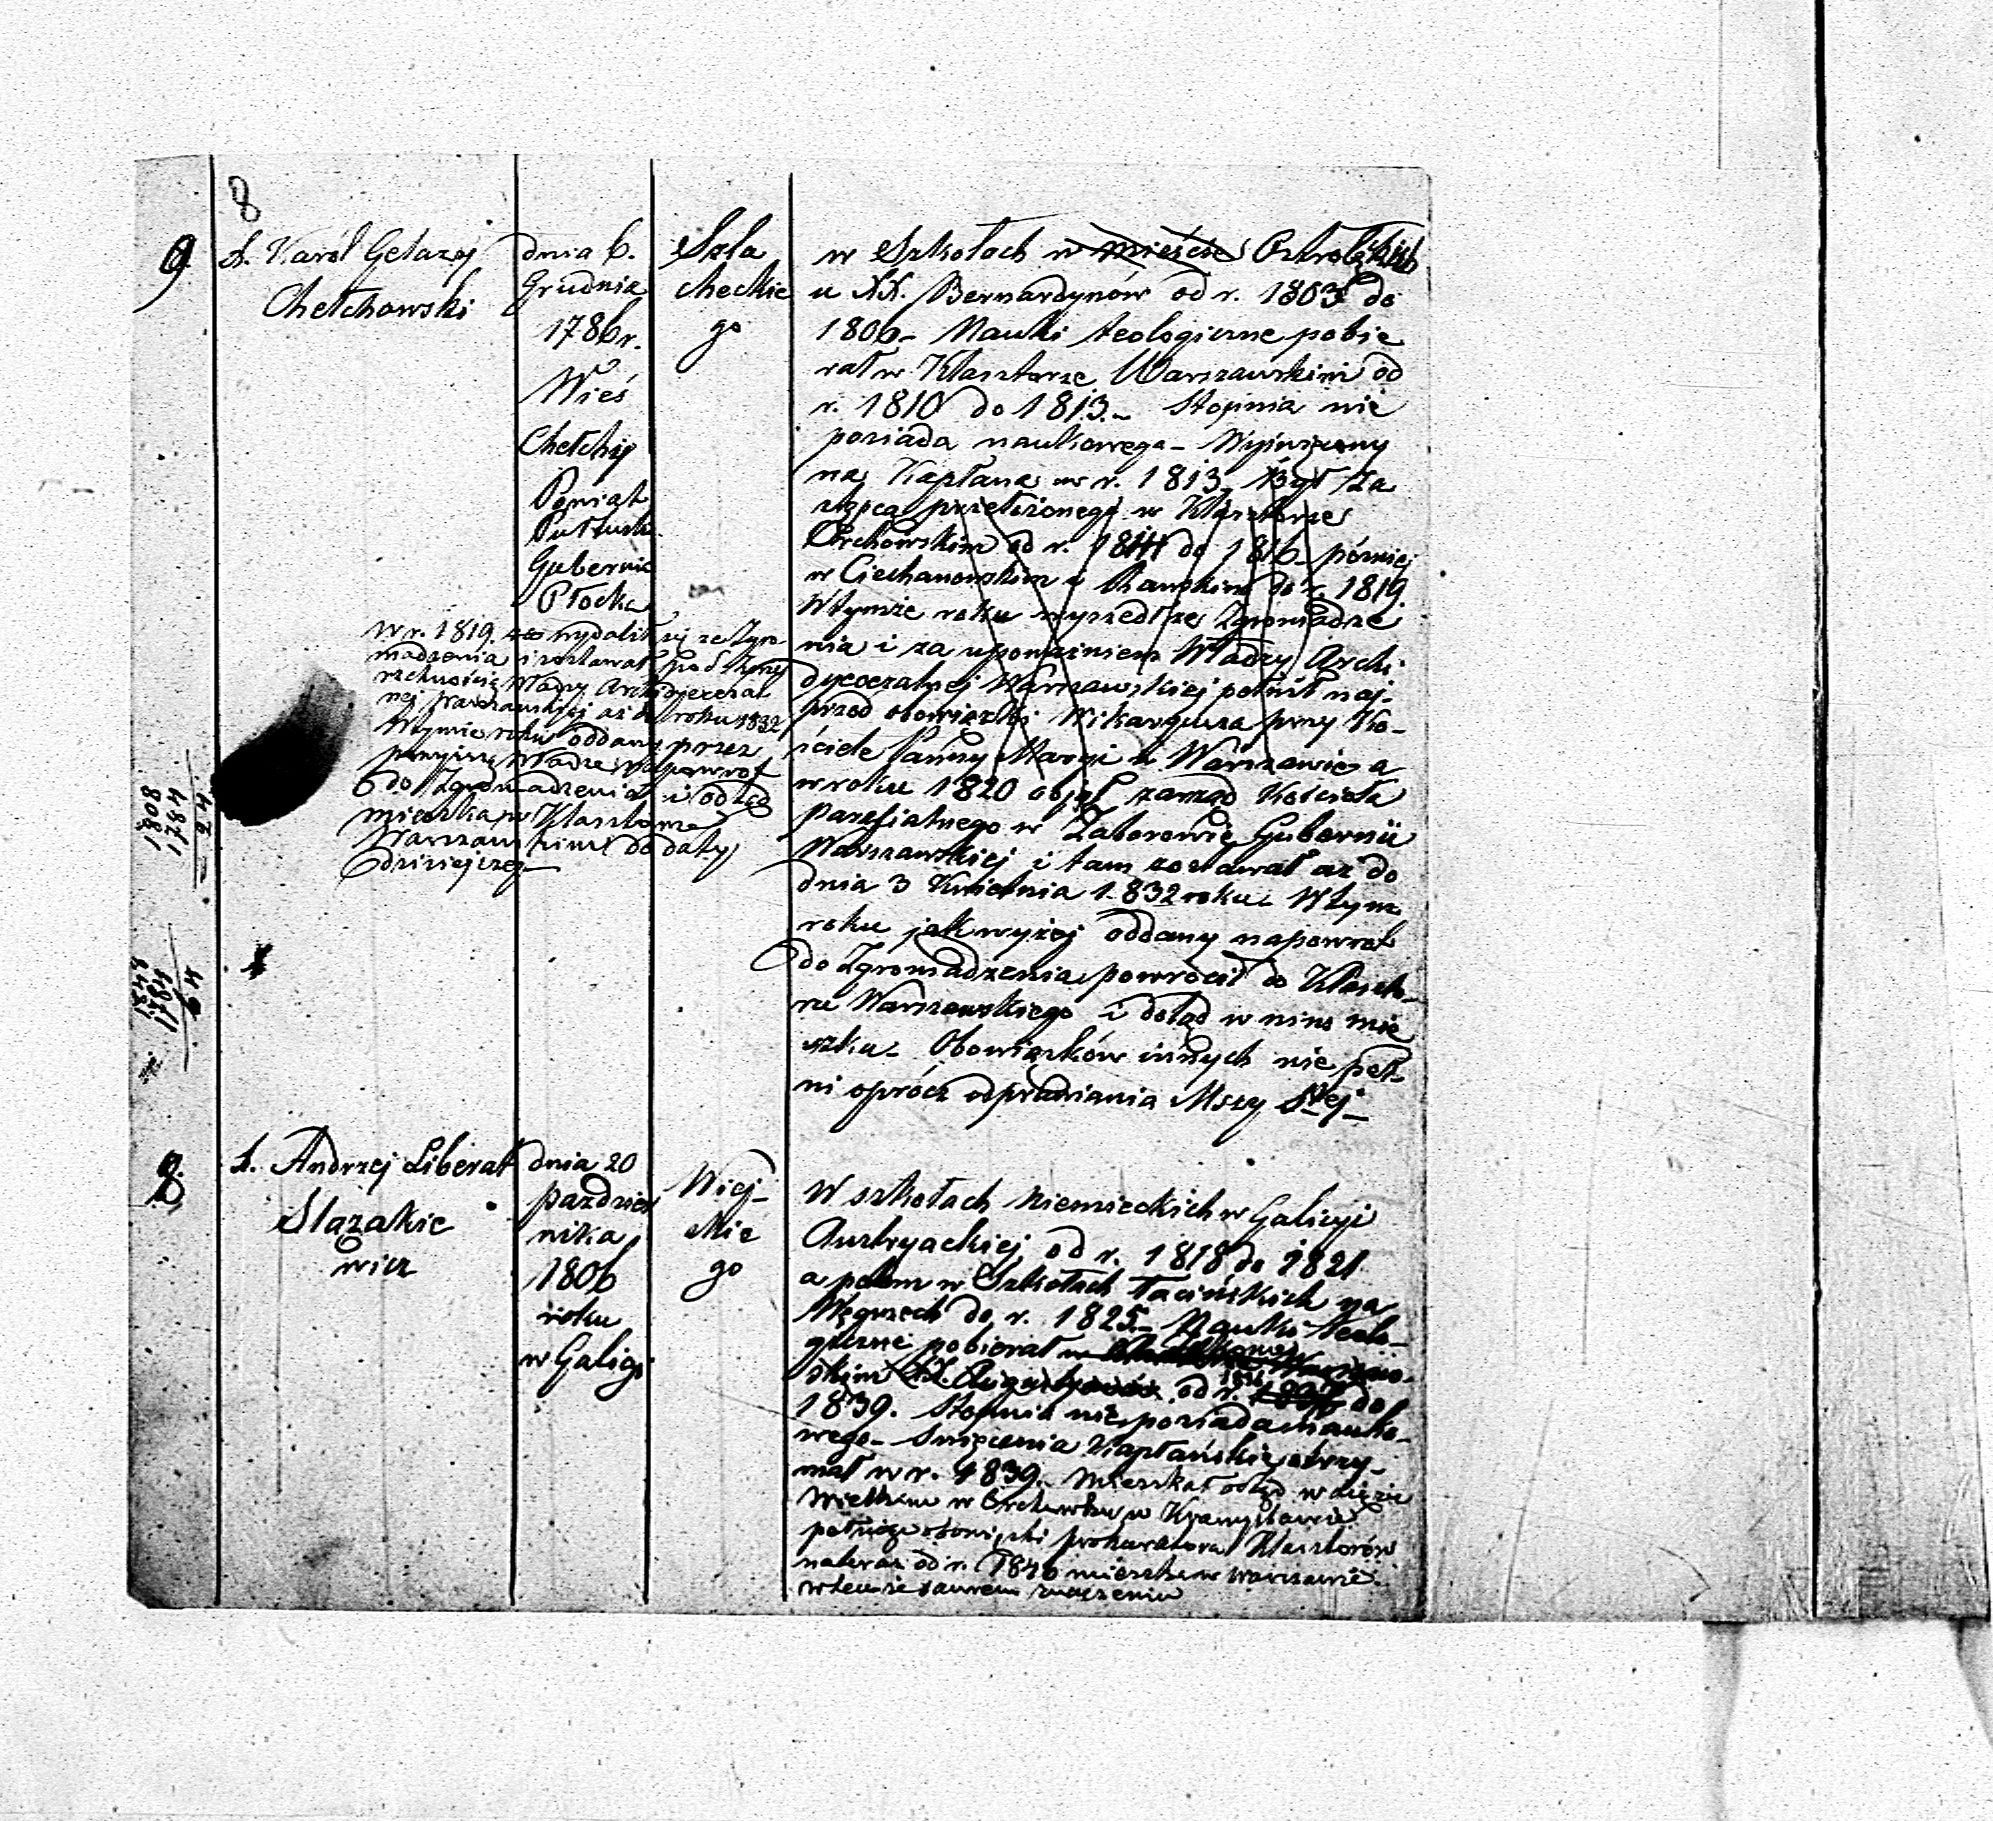 8
9.
X. Karól Gelazej
Chełchowski
dnia 6.
Grudnia
1786 r.
Wieś
Chełchy
Powiat
Pułtusk
Gubernia
Płocka
Szla
checkie
go
w Szkołach w mieście Ostrołęckich
u XX. Bernardynów od r. 1803 do
1806 - Nauki teologiczne pobie
rał w Klasztorze Warszawskim od
r. 1810 do 1813. - Stopnia nie
posiada naukowego - Wyświęcony
na Kapłana w r. 1813 - Był Za
stępcą przełożonego w Klasztorze
Orchowskim od r. 1814 do 1816 - później
w Ciechanowskim i Rawskim do r. 1819.
W tymże roku wyszedł ze Zgromadze
nia i za upoważnieniem Władzy Archi
dyecezalnej Warszawskiej pełnił naj-
przód obowiązki Wikaryusza przy Ko-
ściele Panny Maryi w Warszawie a
w roku 1820 objął zarząd Kościoła
parafialnego w Zaborowie Gubernii
Warszawskiej i tam zostawał aż do
dnia 3 Kwietnia 1832 roku. W tym
roku jak wyżej oddany napowrot
do Zgromadzenia powrócił do Klaszto-
ru Warszawskiego i dotąd w nim mie
szka - Obowiązków innych nie peł-
ni oprócz odprawiania Mszy Stej -
W r. 1819 wydalił się ze Zgro
madzenia i zostawał pod zwie
rzchnością Władzy Archidyecezal
nej Warszawskiej aż do roku 1832
W tymże roku oddany przez
powyższą Władzę napowrot
do Zgromadzenia i odtąd
mieszka w Klasztorze
Warszawskim do daty
dzisiejszej -
42
1871
1808
49
1871
X. Andrzej Liberat
Slazakie
wicz
dnia 20
paździer
nika
1806
roku
w Galicyi
Wiej-
skie
go
W szkołach Niemieckich w Galicyi
Austryackiej od r. 1818 do 1821
a potem w Szkołach łacińskich na
Węgrzech do r. 1825 - Nauki teolo-
giczne pobierał w
skim XX. Augustyanów od r. do
1839. Stopnia nie posiada nauko-
wego - Święcenia Kapłańskie otrzy-
mał w r. 1839. Mieszkał odtąd w
Wielkim w Orchówku w Krasnymstawie
pełniąc obowiązki prokuratora Klasztorów
nateraz od r. 1846 mieszka w Warszawie
w temże samem znaczeniu